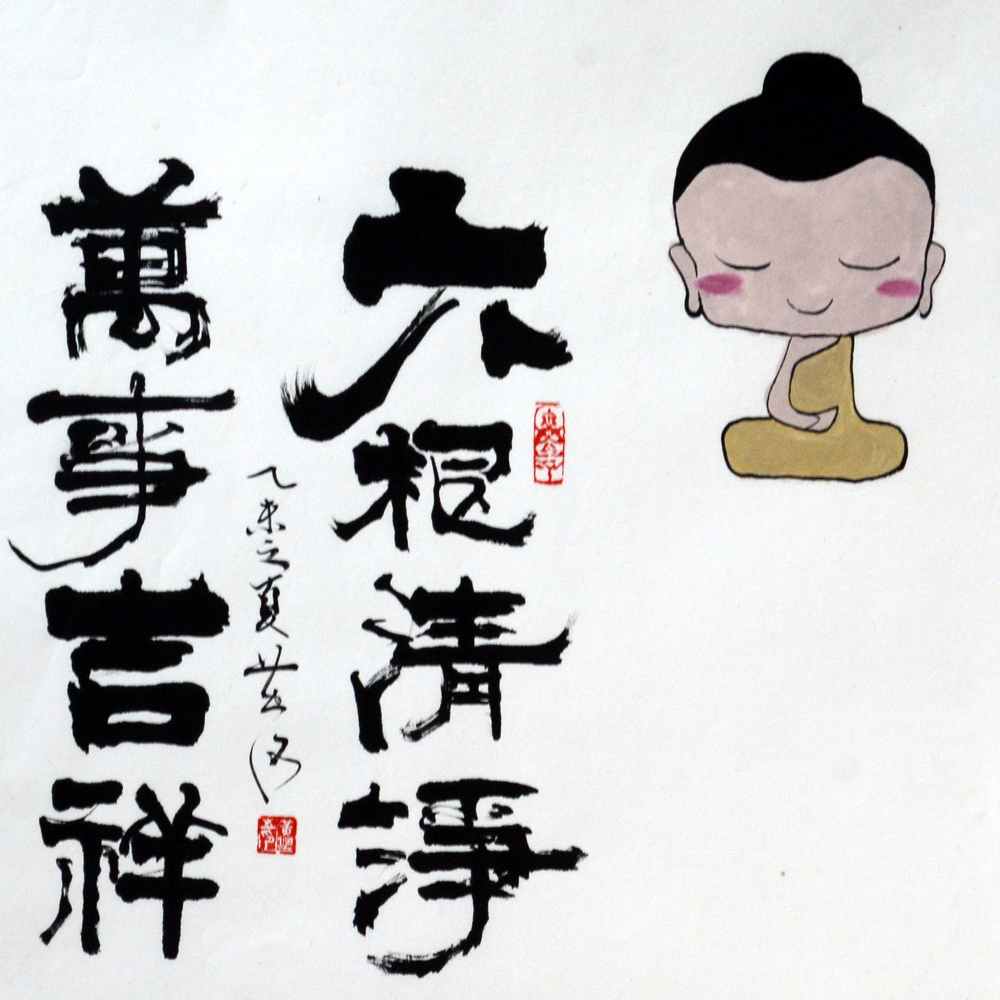 六根清淨
萬事吉祥
乙未之夏